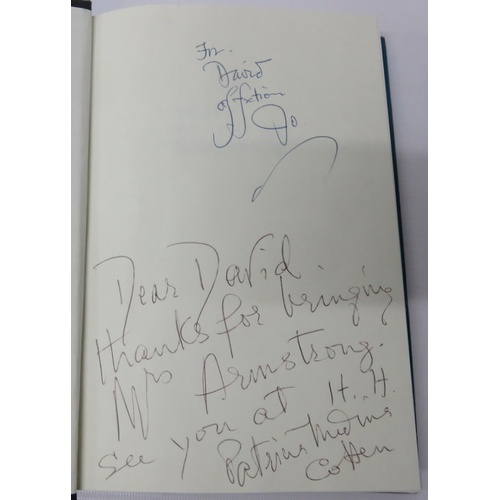 For
David
Dear David
thanks for bringing
Mrs Armstrong.
see you at H.H.
Patricia Medina
Cotten